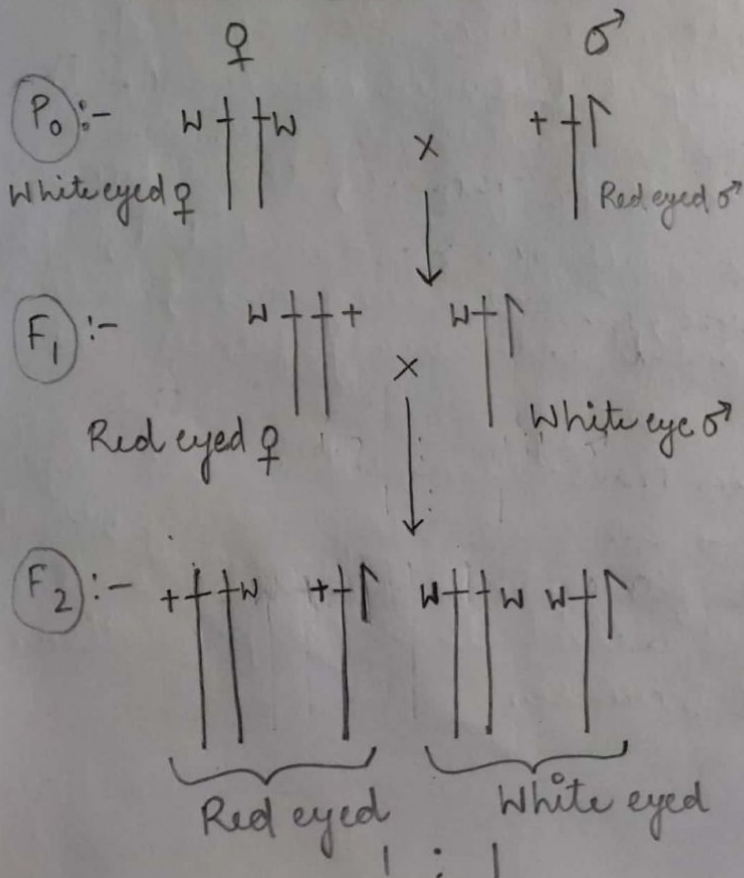 ♀ ♂
P₀:- W W × +
White eyed ♀ Red eyed ♂
F₁:- W + × W
Red eyed ♀ White eye ♂
F₂:- + W + W W W
Red eyed White eyed
1 : 1